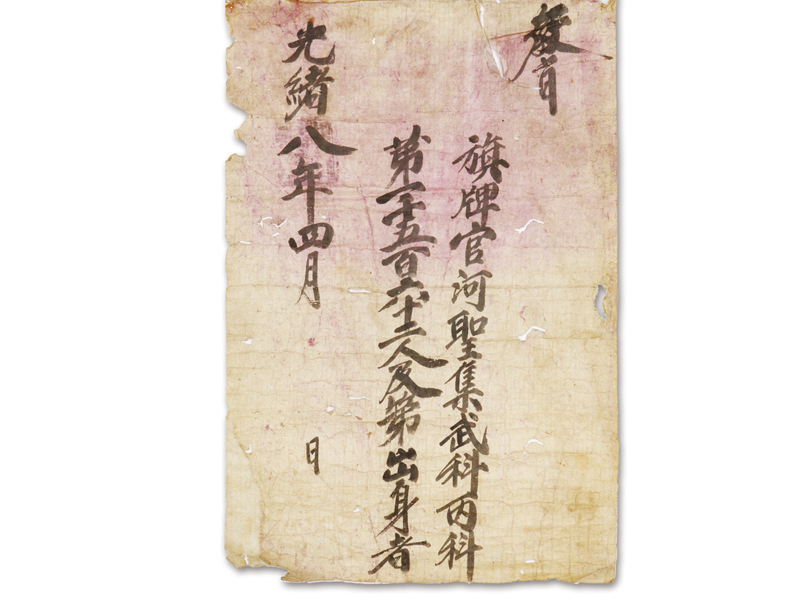 敎旨
旗牌官河聖集武科丙科
第一千五百六十二人及第出身者
光緖八年四月
日